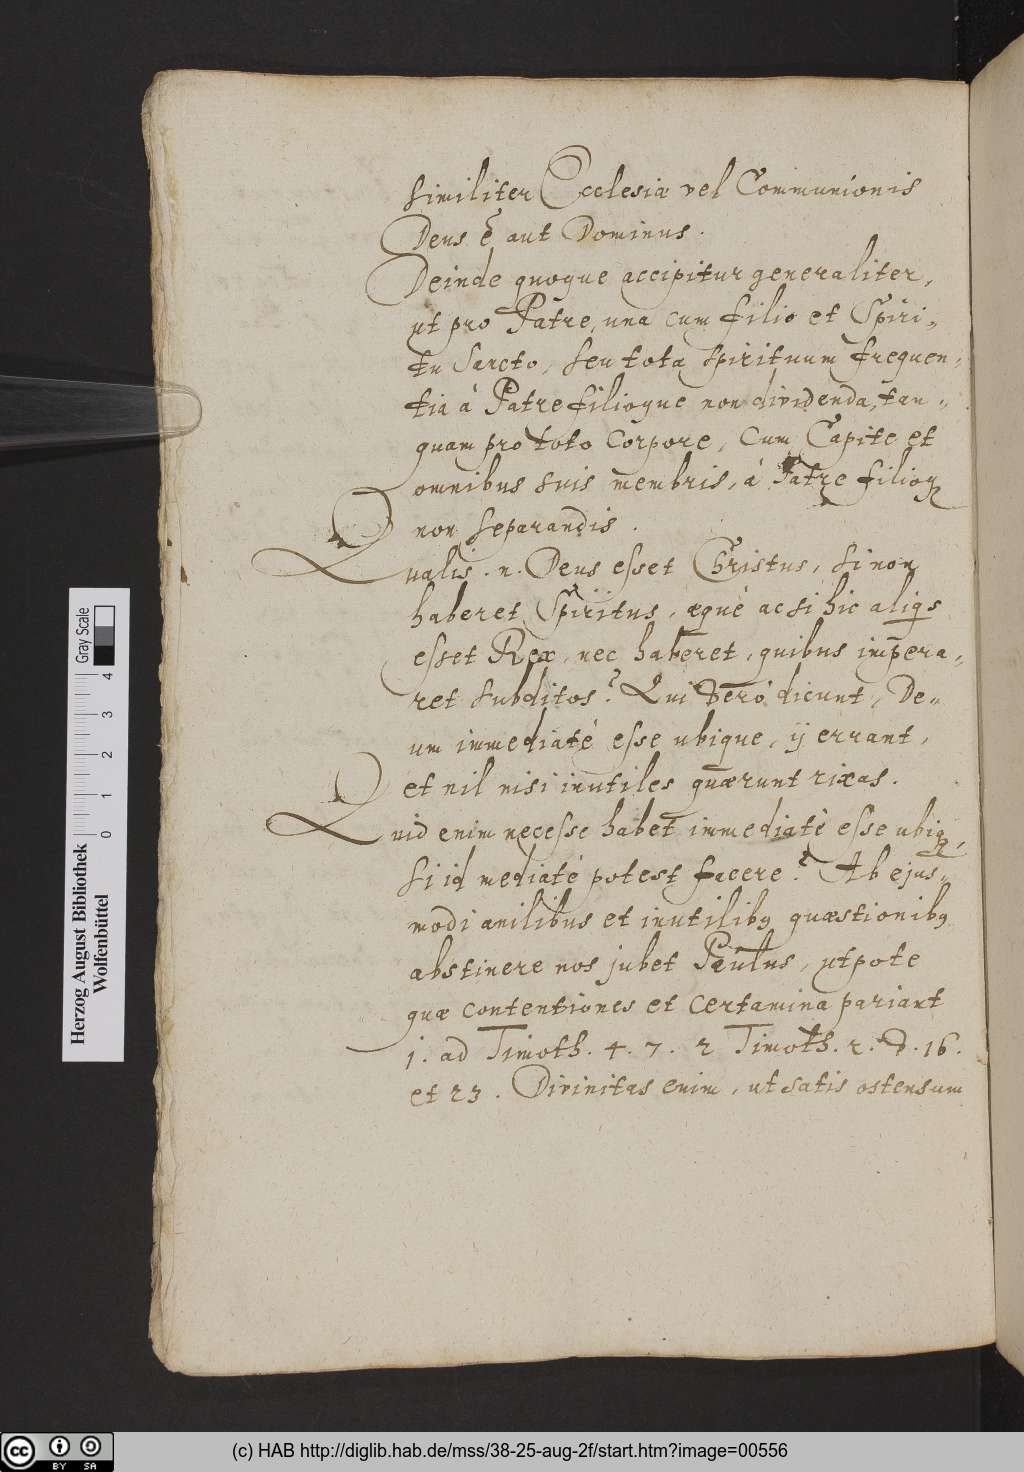 similiter Ecclesiæ vel Communionis
Deus ẽ aut Dominus.
Deinde quoque accipitur generaliter,
ut pro Patre, una cum filio et Spiri„
tu Sancto, seu tota spirituum frequen„
tia à Patre filioque non dividenda, tan„
quam pro toto Corpore, cum Capite et
omnibus suis membris, à Patre filioq
non separandis.
Qualis .n. Deus esset Christus, si non
haberet Spiritus, æquè ac si hic aliqs
esset Rex, nec haberet, quibus impera„
ret subditos? Qui verò dicunt, De„
um immediatè esse ubique, ij errant,
et nil nisi inutiles quærunt rixas.
Quid enim necesse habet immediatè esse ubiq,
si id mediatè potest facere? Ab ejus„
modi anilibus et inutilibꝰ quæstionibꝰ
abstinere nos jubet Paulus, utpote
quæ contentiones et certamina pariant
1. ad Timoth. 4. 7. 2 Timoth. 2. v. 16.
et 23. Divinitas enim, ut satis ostensum
Herzog August Bibliothek
Wolfenbüttel
0 1 2 3 4
Gray Scale
cc BY SA
(c) HAB http://diglib.hab.de/mss/38-25-aug-2f/start.htm?image=00556